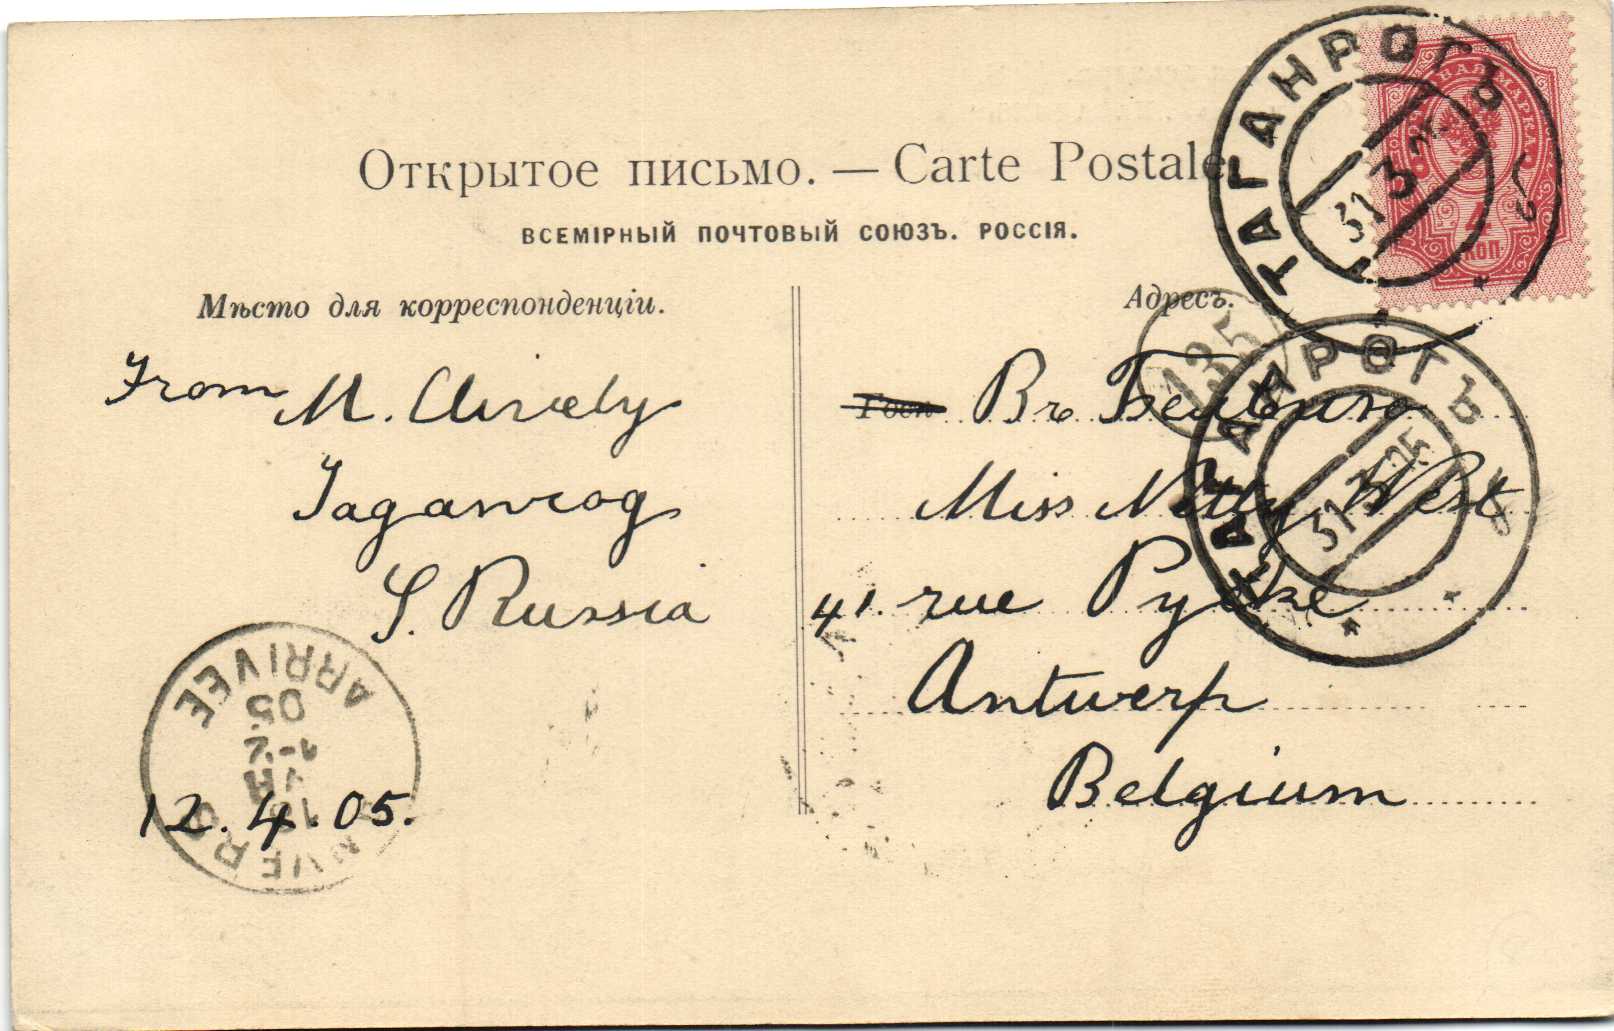 Открытое письмо. — Carte Postale
ВСЕМІРНЫЙ ПОЧТОВЫЙ СОЮЗЪ. РОССІЯ.
Мѣсто для корреспонденціи.
Адресъ.
ТАГАНРОГЪ
31 3
ПОЧТОВАЯ МАРКА
4
КОП.
135
From M.
Taganrog
S. Russia
12.4.05.
ANVERS
ARRIVEE
05
Въ Бельгию
Miss Netty West
41. rue
Antwerp
Belgium
ТАГАНРОГЪ
31 3 05